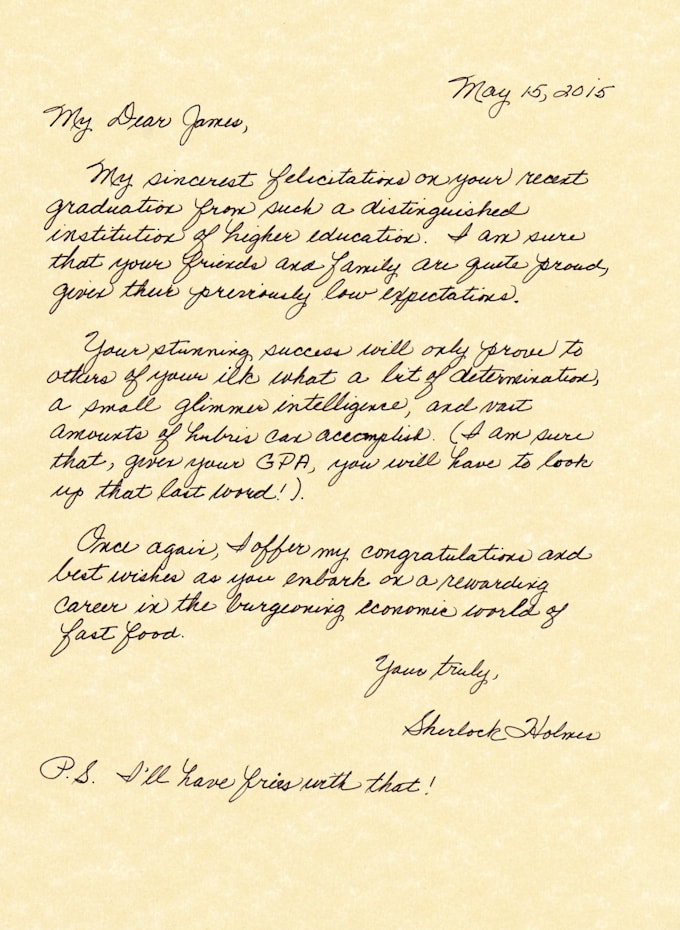 May 15, 2015
My Dear James,
My sincerest felicitations on your recent
graduation from such a distinguished
institution of higher education. I am sure
that your friends and family are quite proud,
given their previously low expectations.
Your stunning success will only prove to
others of your ilk what a bit of determination,
a small glimmer intelligence, and vast
amounts of hubris can accomplish. (I am sure
that, given your GPA, you will have to look
up that last word!).
Once again, I offer my congratulations and
best wishes as you embark on a rewarding
career in the burgeoning economic world of
fast food.
Yours truly,
Sherlock Holmes
P.S. I'll have fries with that!